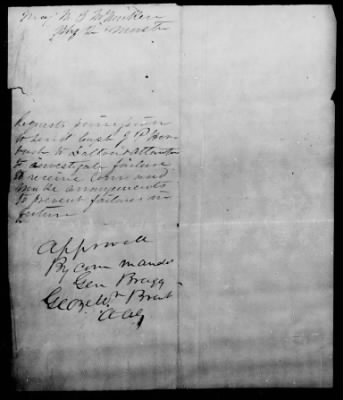 Maj J. F. McMicken
Requests permission
to send Capt J P Horn
back to Dalton & Atlanta
to investigate failure
to receive Corn and
make arrangements
to prevent failures in
future
Approved
By command
Gen Bragg
Geo Wm Brent
AAG